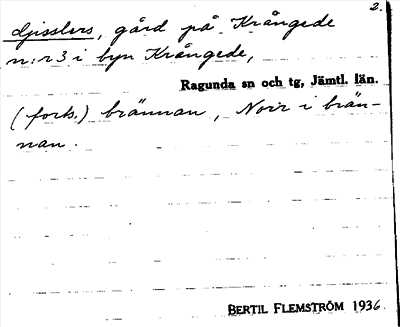 2.
Gisslers, gård på Krångede
n:r 3 i byn Krångede,
Ragunda sn och tg, Jämtl. län.
(forts.) brännan, Norr i brän-
nan.
BERTIL FLEMSTRÖM 1936.